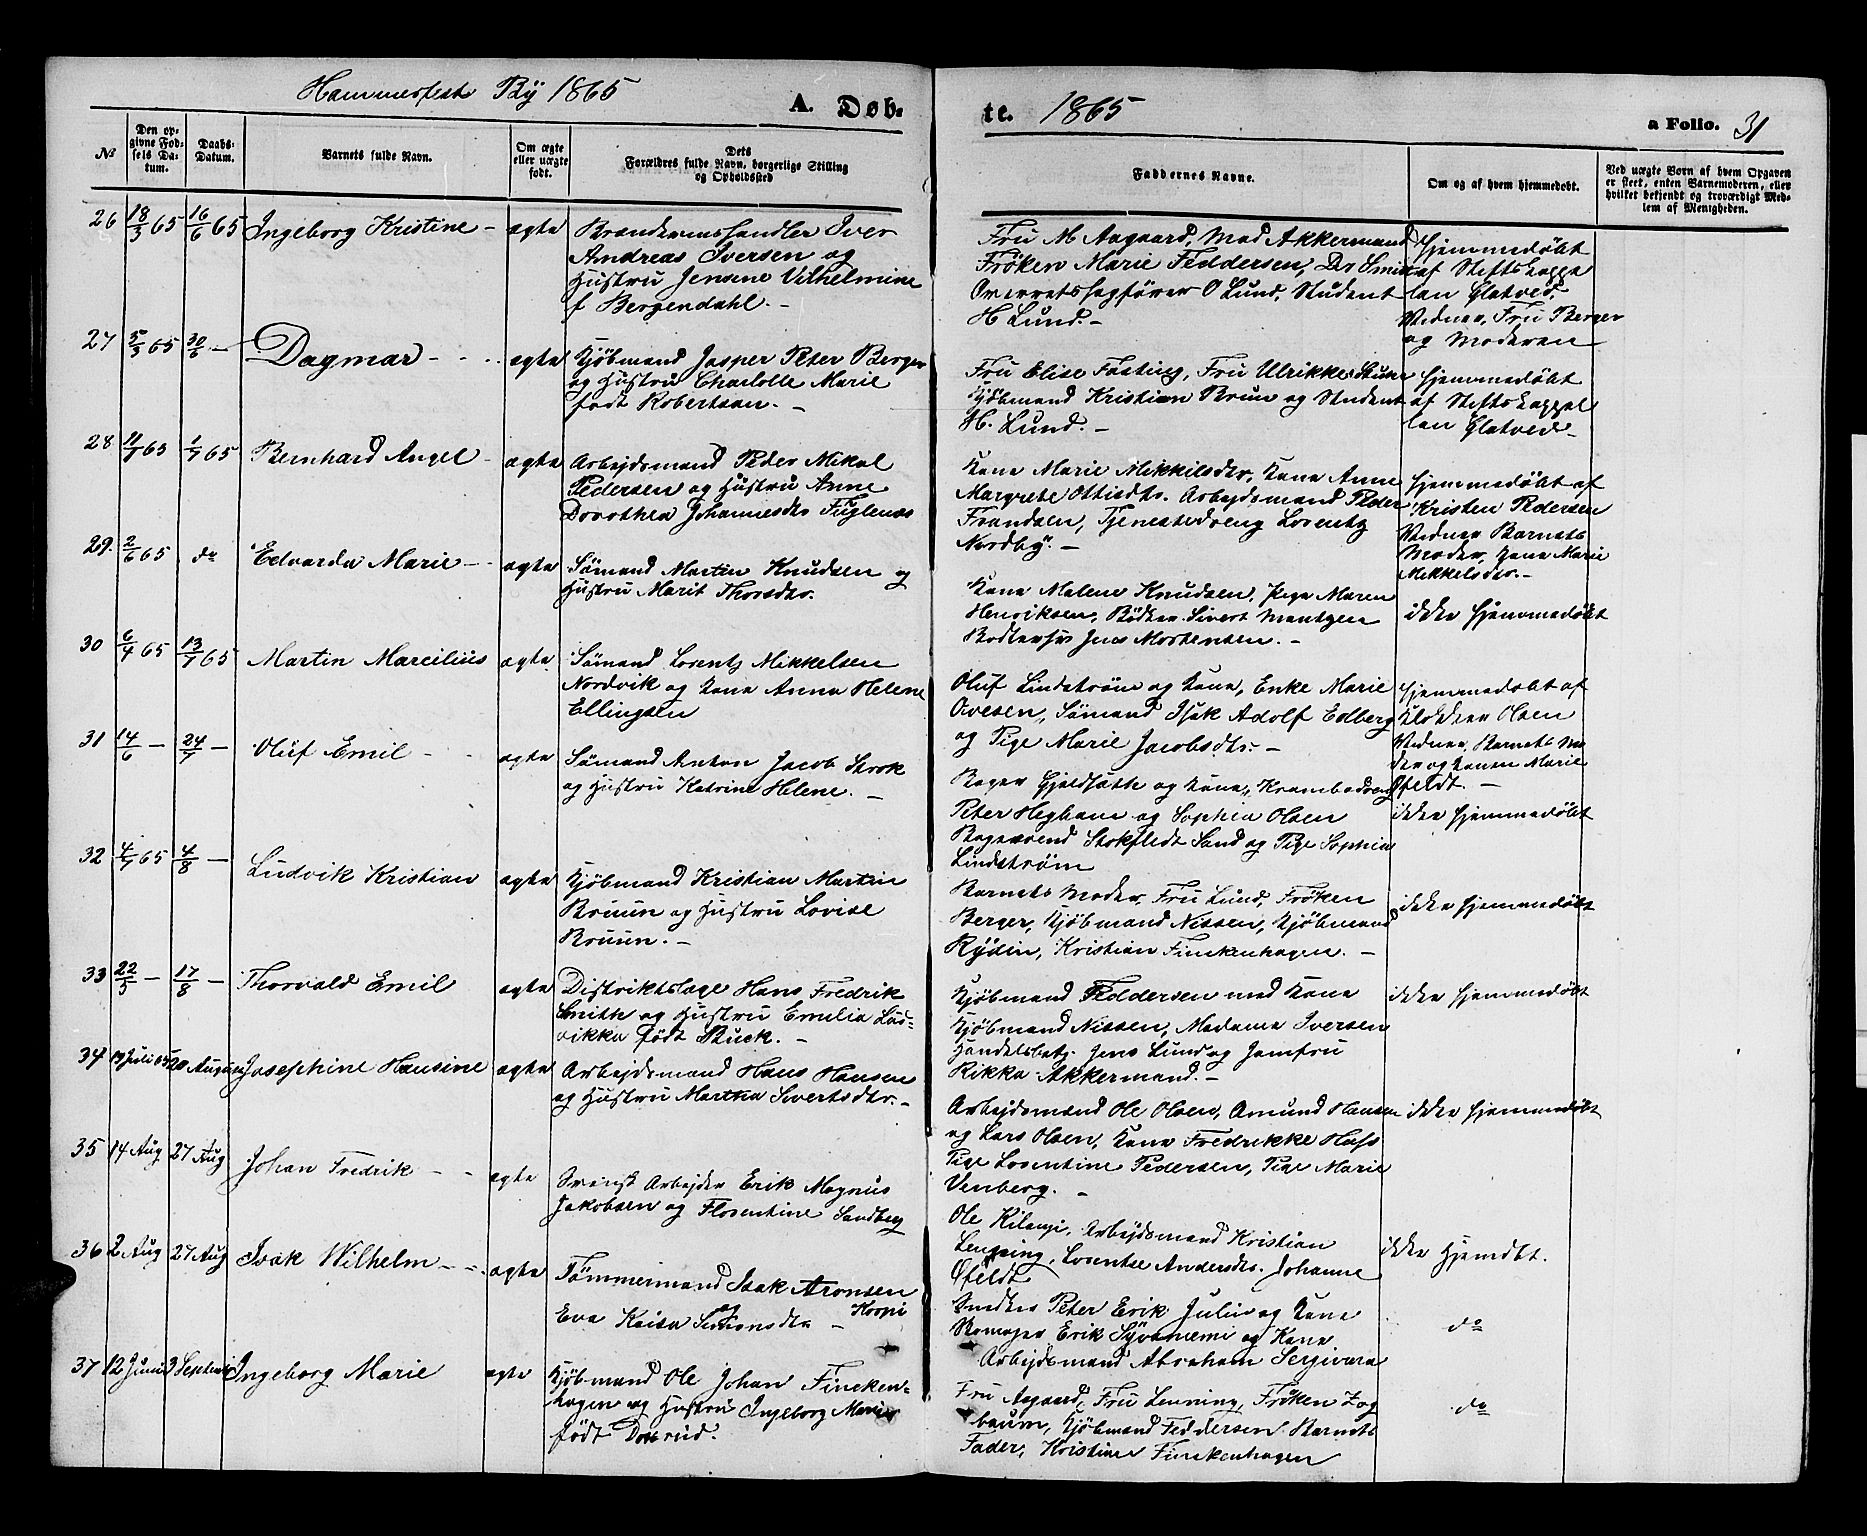 Hammerfest By 1865
A. Døb-
te. 1865
a Folio. 31
№
Den op-
givne Fød-
sels Da-
tum.
Daabs-
Datum.
Barnets fulde Navn.
Om ægte
eller uægte
født.
Dets
Forældres fulde Navn, borgerlige Stilling
og Opholdssted
Faddernes Navne.
Om og af hvem hjemmedøbt.
Ved uægte Børn af hvem Opgaven
er skeet, enten Barnemoderen, eller
hvilket bekjendt og troværdigt Med-
lem af Menigheden.
26 18/3 65 16/6 65 Ingeborg Kristine - ægte
Brændevinshandler Iver
Andreas Iversen og
Hustru Jensine Vilhelmine
f Bergendahl. -
Fru M Aagaard, Mad Akkermand
Frøken Marie Feddersen, Dr Smith
Overretssagfører O Lund, Student
H Lund. -
Hjemmedøbt
af Stiftskappe
lan Glatved.
Vidner, Fru Berger
og Moderen
27 5/3 65 30/6 - Dagmar - - - ægte
Kjøbmand Jasper Peter Berger
og Hustru Charlotte Marie
født Robertson. -
Fru Elise Fasting, Fru Ulrikke
Kjøbmand Kristian Bruun og Student
H. Lund. -
Hjemmedøbt
af Stiftskappel
lan Glatved -
28 65 1/7 65 Bernhard Angel - ægte
Arbejdsmand Peder Mikal
Pedersen og Hustru Anne
Dorothea Johannesdtr Fuglenæs
Kone Marie Mikkelsdtr, Kone Anne
Margrete Ottisdtr. Arbejdsmand Peder
Frandsen, Tjenestedreng Lorentz
Nordby. -
Hjemmedøbt af
Kristen Pedersen
Vidner Barnets
Moder, Kone Marie
Mikkelsdtr. -
29. 2/6 65 do Edvarda Marie - - ægte
Sømand Martin Knudsen og
Hustru Marit Thorsdtr.
Kone Malene Knudsen, Pige Maren
Henriksen, Bødker Sivert
Jens Mortensen. -
ikke hjemmedøbt
30 6/4 65 13/7 65 Martin Marcilius ægte
Sømand Lorentz Mikkelsen
Nordvik og Kone Anna Helene
Ellingsen
Oluf Lindstrøm og Kone, Enke Marie
Ovesen, Sømand Isak Adolf Edberg
og Pige Marie Jacobsdtr. -
Hjemmedøbt af
Klokker Olsen
Vidner, Barnets Mo
der og Konen Marie
Øfeldt. -
31 14/6 - 24/7 - Oluf Emil - - ægte
Sømand Anton Jacob Strok
og Hustru Katrine Helene. -
Bager Gjeldsøth og Kone, Krambodsvend
Peter Hegham og Sophia Olsen
Bagersvend Stokfledt Sand og Pige Sophia
Lindstrøm
ikke hjemmedøbt
32 4/7 65 4/8 - Ludvik Kristian ægte
Kjøbmand Kristian Martin
Bruun og Hustru Lovise
Bruun. -
Barnets Moder, Fru Lund, Frøken
Berger, Kjøbmand Nissen, Kjøbmand
Rydin, Kristian Finckenhagen. -
ikke hjemmedøbt
33 22/5 - 17/8 - Thorvald Emil ægte
Distriktslæge Hans Fredrik
Smith og Hustru Emilia Lud-
vikka født Buck. -
Kjøbmand Feddersen med Kone
Kjøbmand Nissen, Madame Iversen
Handelsbetj. Jens Lund og Jomfru
Rikka Akkermand. -
ikke hjemmedøbt
34 19 Juli 65 20 August Josephine Hansine ægte
Arbejdsmand Hans Hansen
og Hustru Martha Sivertsdtr. -
Arbejdsmænd Ole Olsen, Amund Hansen
og Lars Olsen, Kone Fredrikke Hass
Pige Lorentine Pedersen, Pige Marie
Venberg. -
ikke hjemmedøbt
35 14 Aug 27 Aug Johan Fredrik - - ægte
Svensk Arbejder Erik Magnus
Jakobsen og Florentine Sandberg
Ole Kilangi, Arbejdsmand Kristian
Lenning, Lorentse Andersdtr. Johanne
Øfeldt
ikke Hjemdbt.
36 2 Aug 27 Aug Isak Wilhelm - - ægte
Tømmermand Isak Aronsen
Korpi
og
Eva Kaisa Simonsdtr -
Snedker Peter Erik Julin og Kone
Skomager Erik Syvaniemi og Kone
Arbejdsmand Abraham Sergivara
do
37 12 Juni 3 September Ingeborg Marie ægte
Kjøbmand Ole Johan Fincken-
hagen og Hustru Ingeborg Marie
født Dørrud.
Fru Aagaard, Fru Lenning, Frøken Zog
baum, Kjøbmand Feddersen Barnets
Fader, Kristine Finckenhagen
do